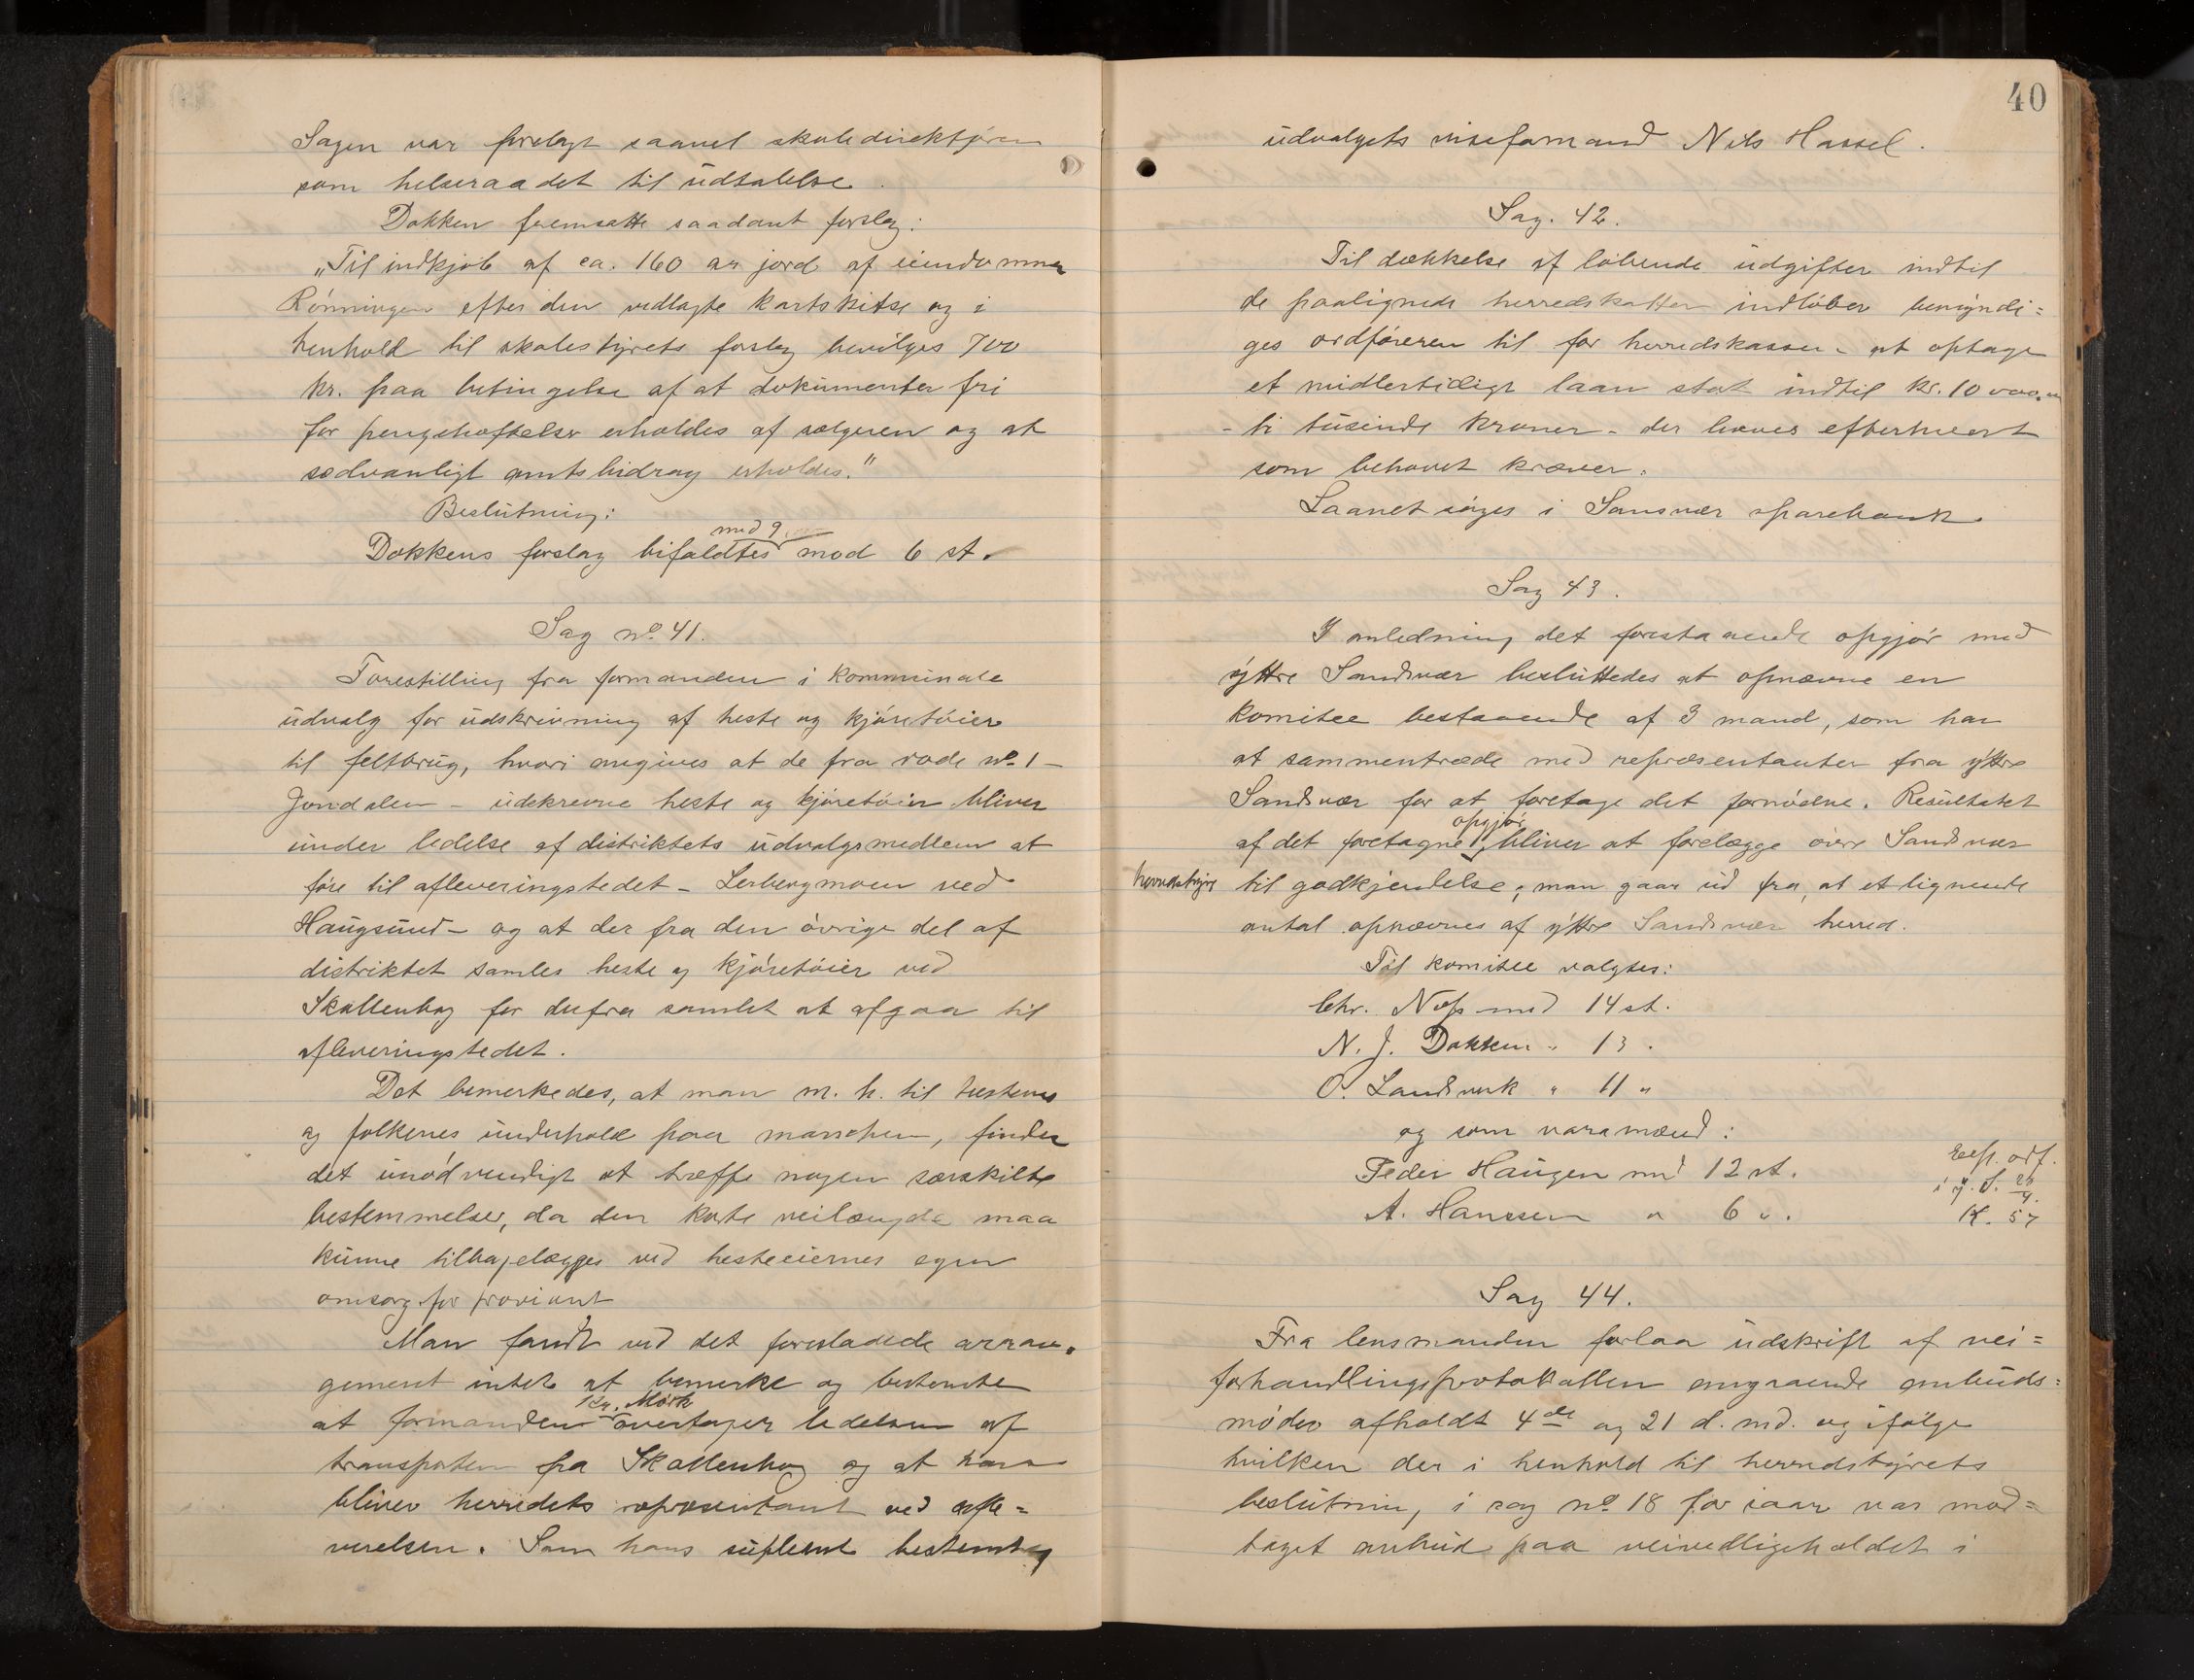 Sagen var forelagt saavel skoledirektøren
som helseraadet til udtalelse.
Dokken fremsatte saadant forslag:
„Til indkjøb af ca. 160 ar jord af eiendommen
Rønningen efter den vedlagte kartskitse og i
henhold til skolestyrets forslag bevilges 700
kr. paa betingelse af at dokumenter fri
for pengeheftelser erholdes af sælgeren og at
sedvanligt amtsbidrag erholdes."
Beslutning:
Dokkens forslag bifaldtes med 9 mod 6 st.
Sag No. 41.
Forestilling fra formanden i kommunale
udvalg for udskrivning af heste og kjøretøier
til feltbrug, hvori angives at de fra rode No. 1 –
Jondalen – udskrevne heste og kjøretøier bliver
under ledelse af distriktets udvalgsmedlem at
føre til afleveringstedet – Lerbergmoen ved
Haugsund – og at der fra den øvrige del af
distriktet samles heste og kjøretøier ved
Skollenborg for derfra samlet at afgaa til
afleveringstedet.
Det bemerkedes, at man m. h. til hestenes
og folkenes underhold paa marschen, finder
det unødvendigt at træffe nogen særskilte
bestemmelser, da den korte veilængde maa
kunne tilbagelægges ved hesteeiernes egen
omsorg for proviant
Man fandt ved det foreslaaede arran-
gement intet at bemerke og bestemte
at formanden Kr. Mørk overtager ledelsen af
transporten fra Skollenborg og at han
bliver herredets repræsentant ved afle=
verelsen. Som hans suplent bestemtes
40
udvalgets viseformand Nils Hassel.
Sag. 42.
Til dækkelse af løbende udgifter indtil
de paalignede herredskatter indløber bemyndi=
ges ordføreren til for herredskassen at optage
et midlertidigt laan stort indtil kr. 10 000.00
– ti tusinde kroner – der hæves efterhvert
som behovet kræver.
Laanet søges i Sansvær sparebank.
Sag 43.
I anledning det forestaaende opgjør med
yttre Sandsvær besluttedes at opnævne en
komitee bestaaende af 3 mand, som har
at sammentræde med repræsentanter fra yttre
Sandsvær for at foretage det fornødne. Resultatet
af det foretagne opgjør bliver at forelægge øvre Sandsvær
herredsstyre til godkjendelse; man gaar ud fra, at et lignende
antal opnævnes af yttre Sandsvær herred.
Til komitee valgtes:
Chr. Næss med 14 st.
N. J. Dokken " 13.
O. Landsverk " 11 "
og som varamænd:
Peder Haugen med 12 st.
A. Hanssen " 6 ".
Exp. ordf.
i y. S. 26/4.
K. 57
Sag 44.
Fra lensmanden forlaa udskrift af vei=
forhandlingsprotokollen angaaende anbuds=
møder afholdt 4de og 21 d. md. og ifølge
hvilken der i henhold til herredstyrets
beslutning i sag No. 18 for iaar var mod=
taget anbud paa veivedligeholdet i